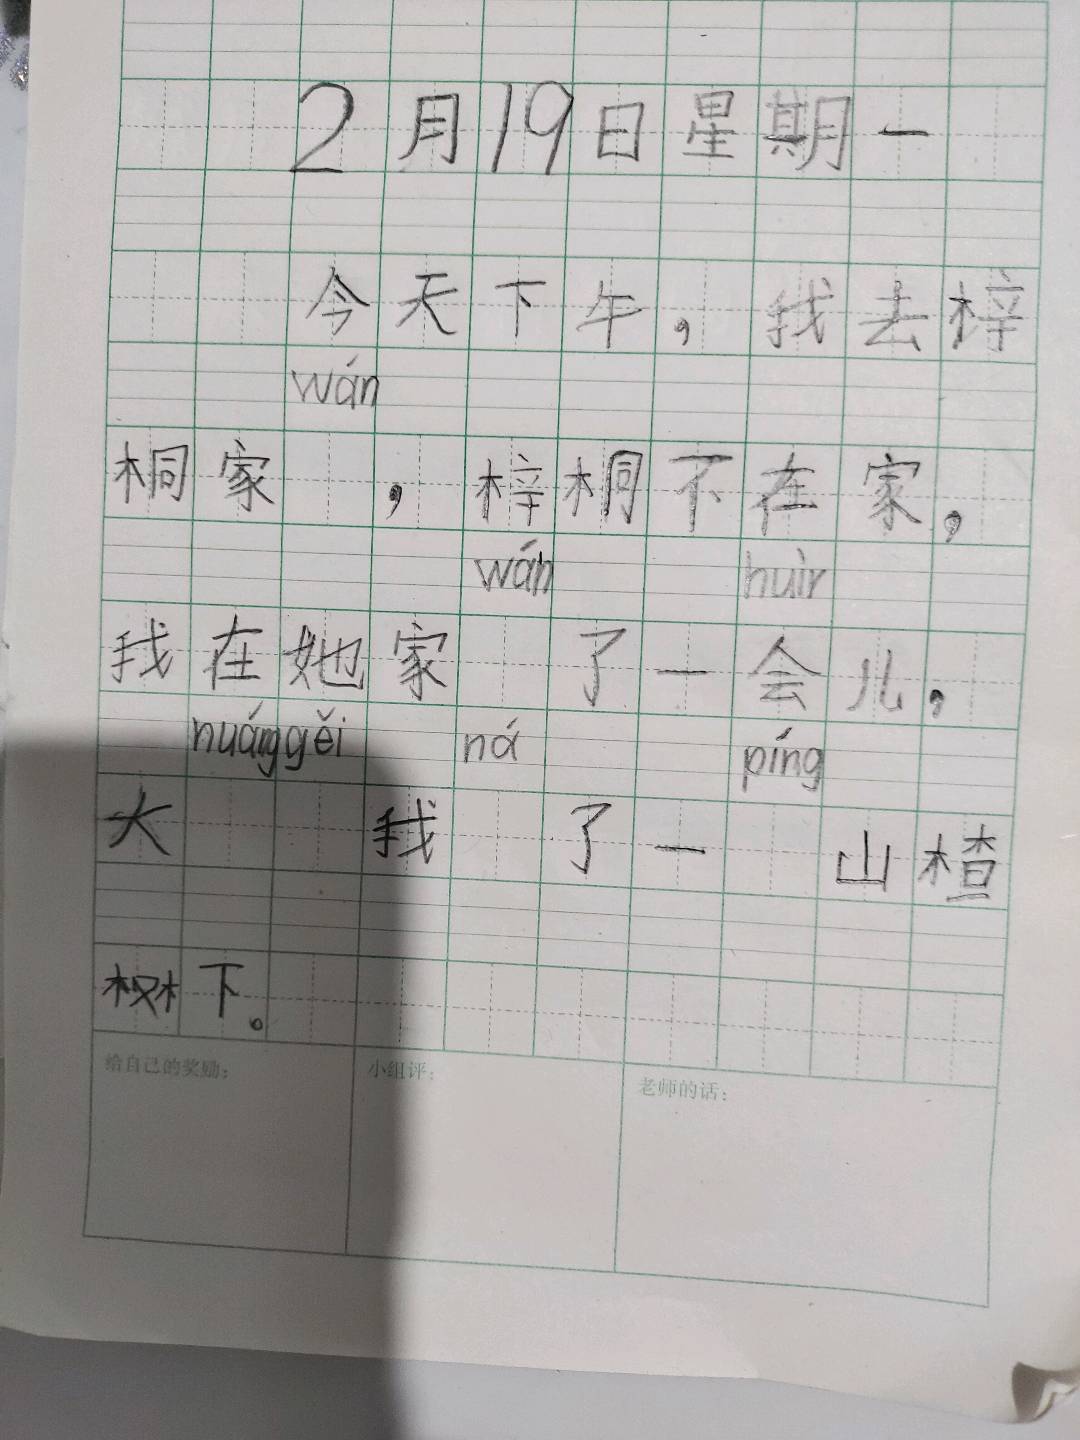 2月19日星期一
今天下午，我去梓
wán
桐家，梓桐不在家，
wán huìr
我在她家了一会儿，
huánggěi ná píng
大我了一山楂
树下。
给自己的奖励： 小组评： 老师的话：